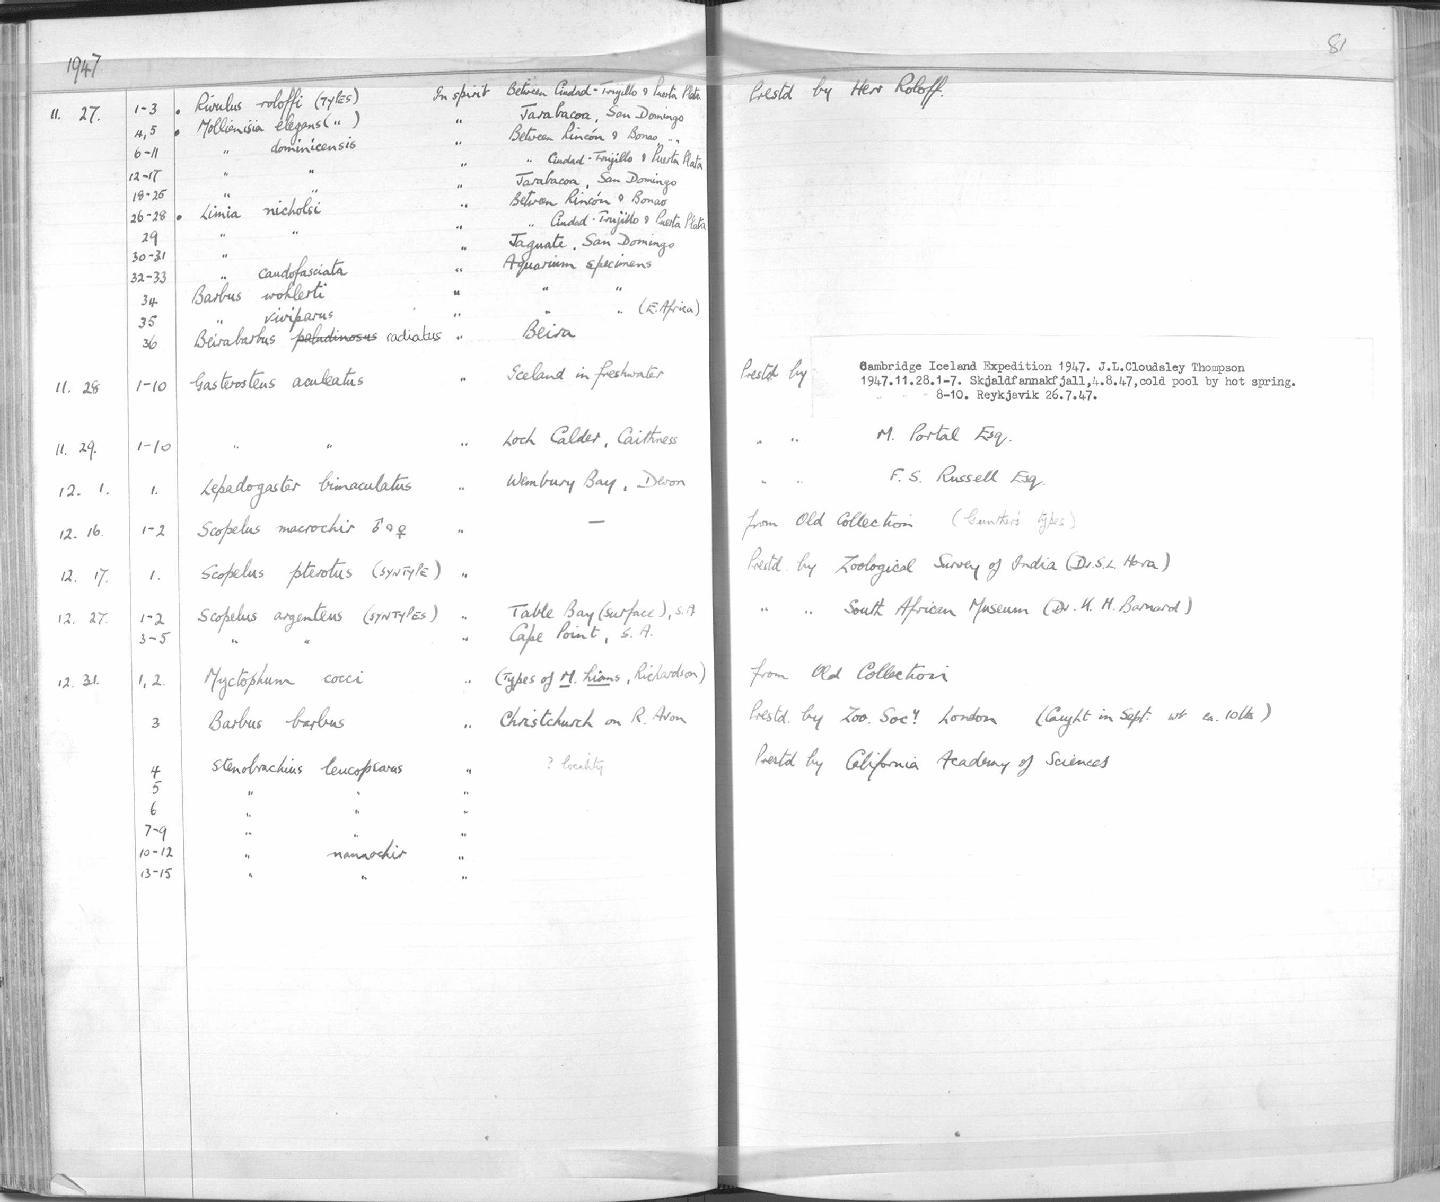 1947
81
11. 27. 1-3 . Rivulus roloffi (TYPES) In spirit Between Ciudad-Trujillo & Puerta Plata Prestd by Herr Roloff.
4,5 . Mollienisia elegans ( " ) " Jarabacoa, San Domingo
6-11 " dominicensis " Between Rincón & Bonao " "
12-17 " " " " Ciudad-Trujillo & Puerta Plata
18-25 " " " Jarabacoa, San Domingo
26-28 . Limia nicholsi " Between Rincón & Bonao
29 " " " " Ciudad-Trujillo & Puerta Plata
30-31 " " Jaguate, San Domingo
32-33 " caudofasciata " Aquarium specimens
34 Barbus wohlerti " " "
35 " viviparus " " " (E. Africa)
36 Beirabarbus paladinosus radiatus " Beira
11. 28 1-10 Gasterosteus aculeatus " Iceland in freshwater Prestd by
Cambridge Iceland Expedition 1947. J.L.Cloudsley Thompson
1947.11.28.1-7. Skjaldfannakfjall,4.8.47,cold pool by hot spring.
8-10. Reykjavik 26.7.47.
11. 29. 1-10 " " " Loch Calder, Caithness " " M. Portal Esq.
12. 1. 1. Lepadogaster bimaculatus " Wembury Bay, Devon " " F. S. Russell Esq.
12. 16. 1-2 Scopelus macrochir ♂ & ♀ " — from Old Collection (Gunther's types)
12. 17. 1. Scopelus pterotus (SYNTYPE) " Prestd. by Zoological Survey of India (Dr. S.L. Hora)
12. 27. 1-2 Scopelus argenteus (SYNTYPES) " Table Bay (surface), S.A " " South African Museum (Dr. K. H. Barnard)
3-5 " " " Cape Point, S. A.
12. 31. 1, 2. Myctophum cocci " (Types of M. hians, Richardson) from Old Collection
3 Barbus barbus " Christchurch on R. Avon Prestd. by Zoo. Socy. London (Caught in Sept. wt ca. 10 lbs)
4 Stenobrachius leucopsarus " ? locality Prestd by California Academy of Sciences
5 " " "
6 " " "
7-9 " " "
10-12 " nannochir "
13-15 " " "